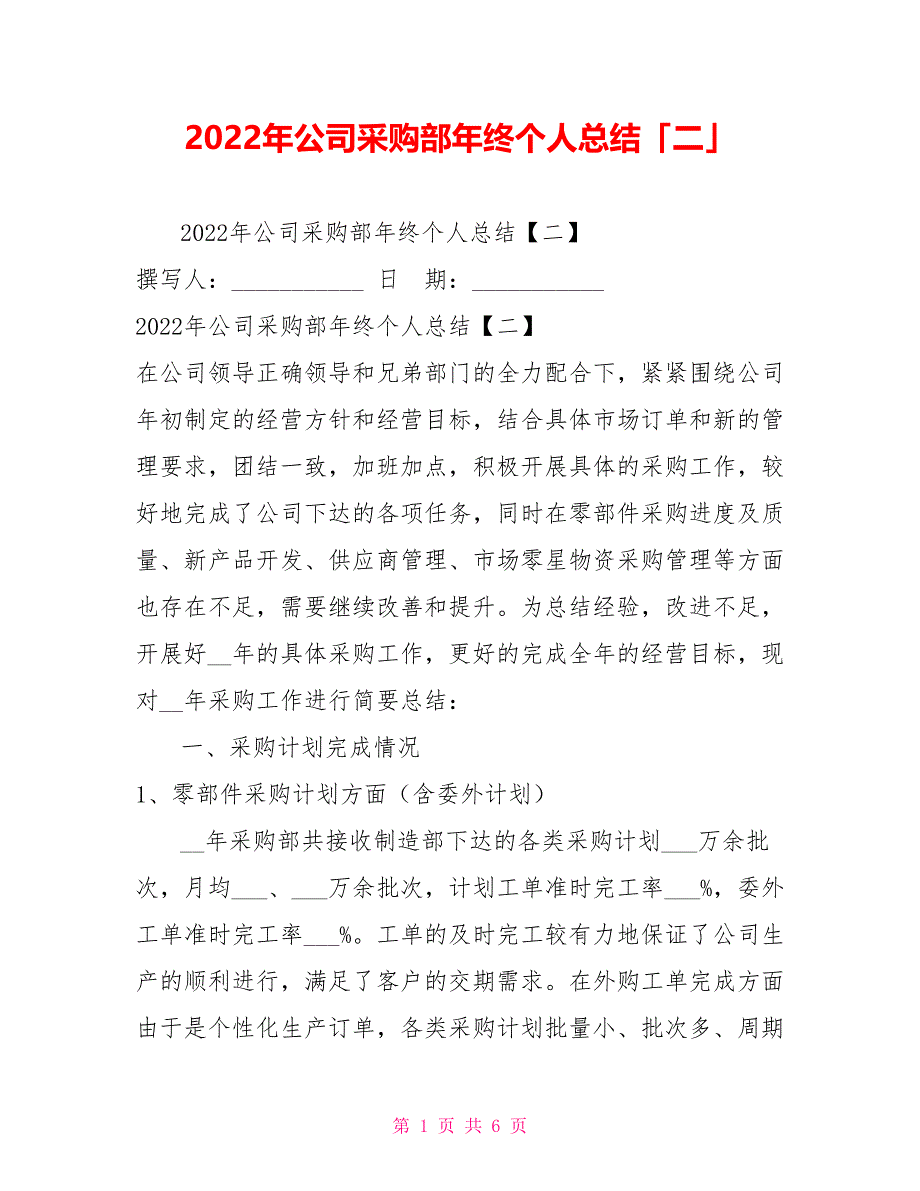 2022年公司采购部年终个人总结「二」
2022年公司采购部年终个人总结【二】
撰写人：___________ 日　期：___________
2022年公司采购部年终个人总结【二】
在公司领导正确领导和兄弟部门的全力配合下，紧紧围绕公司
年初制定的经营方针和经营目标，结合具体市场订单和新的管
理要求，团结一致，加班加点，积极开展具体的采购工作，较
好地完成了公司下达的各项任务，同时在零部件采购进度及质
量、新产品开发、供应商管理、市场零星物资采购管理等方面
也存在不足，需要继续改善和提升。为总结经验，改进不足，
开展好__年的具体采购工作，更好的完成全年的经营目标，现
对__年采购工作进行简要总结：
一、采购计划完成情况
1、零部件采购计划方面（含委外计划）
__年采购部共接收制造部下达的各类采购计划___万余批
次，月均___、___万余批次，计划工单准时完工率___%，委外
工单准时完工率___%。工单的及时完工较有力地保证了公司生
产的顺利进行，满足了客户的交期需求。在外购工单完成方面
由于是个性化生产订单，各类采购计划批量小、批次多、周期
第 1 页 共 6 页